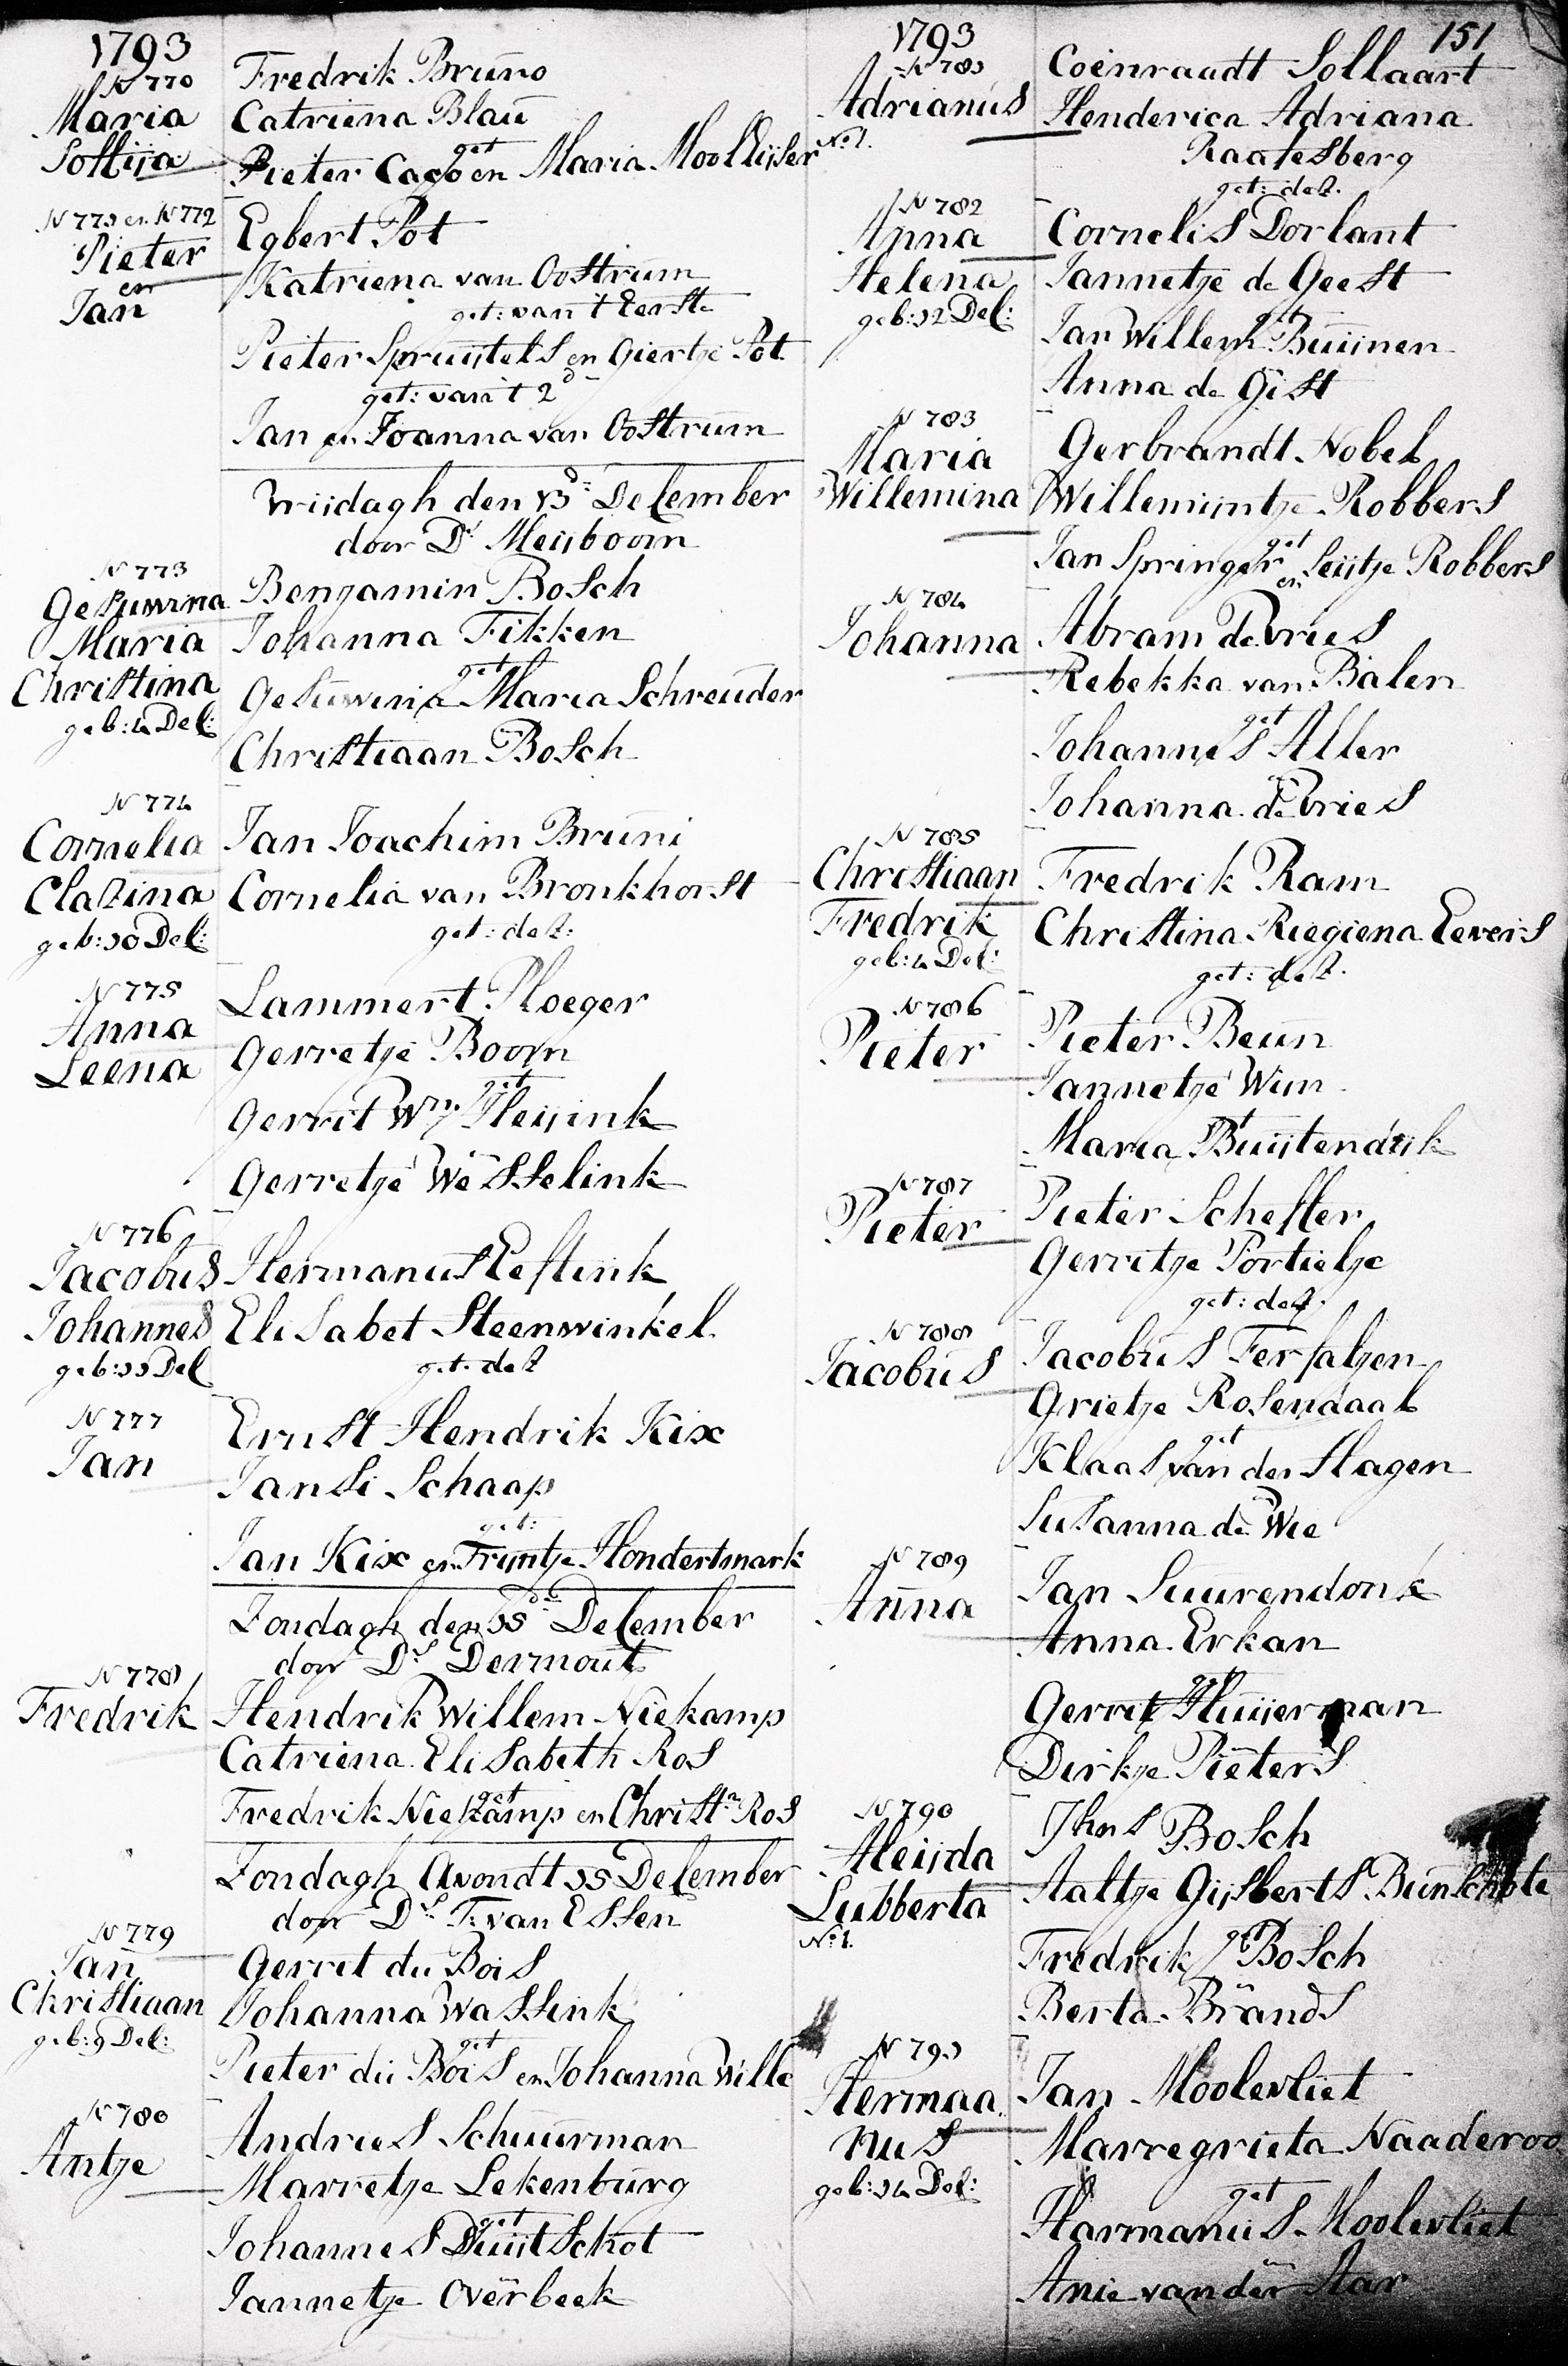 1793
N 770
Maria
Soffija
Fredrik Bruno
Catriena Blau
get
Pieter Cago en Maria Moolleijser
N 771 en N 772
Pieter
en
Jan
Egbert Pot
Katriena van Oostrum
get: van t Eerste
Pieter Spruijtels en Giertje Pot
get: van t 2d
Jan en Joanna van Oostrum
Vrijdagh den 13d December
door Ds Meijboom
N 773
Gesuwina
Maria
Christina
geb: 4 Dec:
Benjamin Bosch
Johanna Fikken
get
Gesuwina Maria Schreuder
Christiaan Bosch
N 774
Cornelia
Clasina
geb: 10 Dec:
Jan Joachim Bruni
Cornelia van Bronkhorst
get: dez:
N 775
Anna
Leena
Lammert Ploeger
Gerretje Boom
get
Gerrit Wm Heijink
Gerretje Wesselink
N 776
Jacobus
Johannes
geb: 11 Dec
Hermanus Eeftink
Elisabet Steenwinkel
get: dez
N 777
Jan
Ernst Hendrik Kix
Jansi Schaap
get:
Jan Kix en Trijntje Hondertmark
Zondagh den 15de December
door Ds Dermout
N 778
Fredrik
Hendrik Willem Niekamp
Catriena Elisabeth Ros
get
Fredrik Niekamp en Christn Ros
Zondagh Avondt 15 December
door Ds T. van Essen
N 779
Jan
Christiaan
geb: 9 Dec:
Gerret du Bois
Johanna Wassink
get
Pieter du Bois en Johanna Wille
N 780
Antje
Andries Schuurman
Marretje Lekenburg
get
Johannes Duijtschot
Jannetje Overbeek
1793
151
N 781
Adrianus
No 1.
Coenraadt Sollaart
Henderica Adriana
Raatesberg
get: dez.
N 782
Anna
Helena
geb: 12 Dec:
Cornelis Dorlant
Jannetje de Geest
get
Jan Willem Buijnen
Anna de Gist
N 783
Maria
Willemina
Gerbrandt Nobel
Willemijntje Robbers
get
Jan Springer en Seijtje Robbers
N 784
Johanna
Abram de Vries
Rebekka van Balen
get
Johannes Aller
Johanna de Vries
N 785
Christiaan
Fredrik
geb: 4 Dec:
Fredrik Ram
Christina Riegiena Eeveis
get: dez.
N 786
Pieter
Pieter Beun
Jannetje Wim
get
Maria Buijtendijk
N 787
Pieter
Pieter Scheffer
Gerritje Portielje
get: dez.
N 788
Jacobus
Jacobus Ferfaljen
Grietje Rosendaal
get
Klaas van der Hagen
Susanna de Wie
N 789
Anna
Jan Suurendonk
Anna Erkan
get
Gerrit Huijerman
Dirkje Pieters
N 790
Aleijda
Lubberta
No 1.
Jhs Bosch
Aaltje Gijsberts Bunschote
get
Fredrik Bosch
Berta Brands
N 791
Hermaa
nus
geb: 14 Dec:
Jan Moolevliet
Marregrieta Naaderoo
get
Harmanus Moolevliet
Anie van der Aar